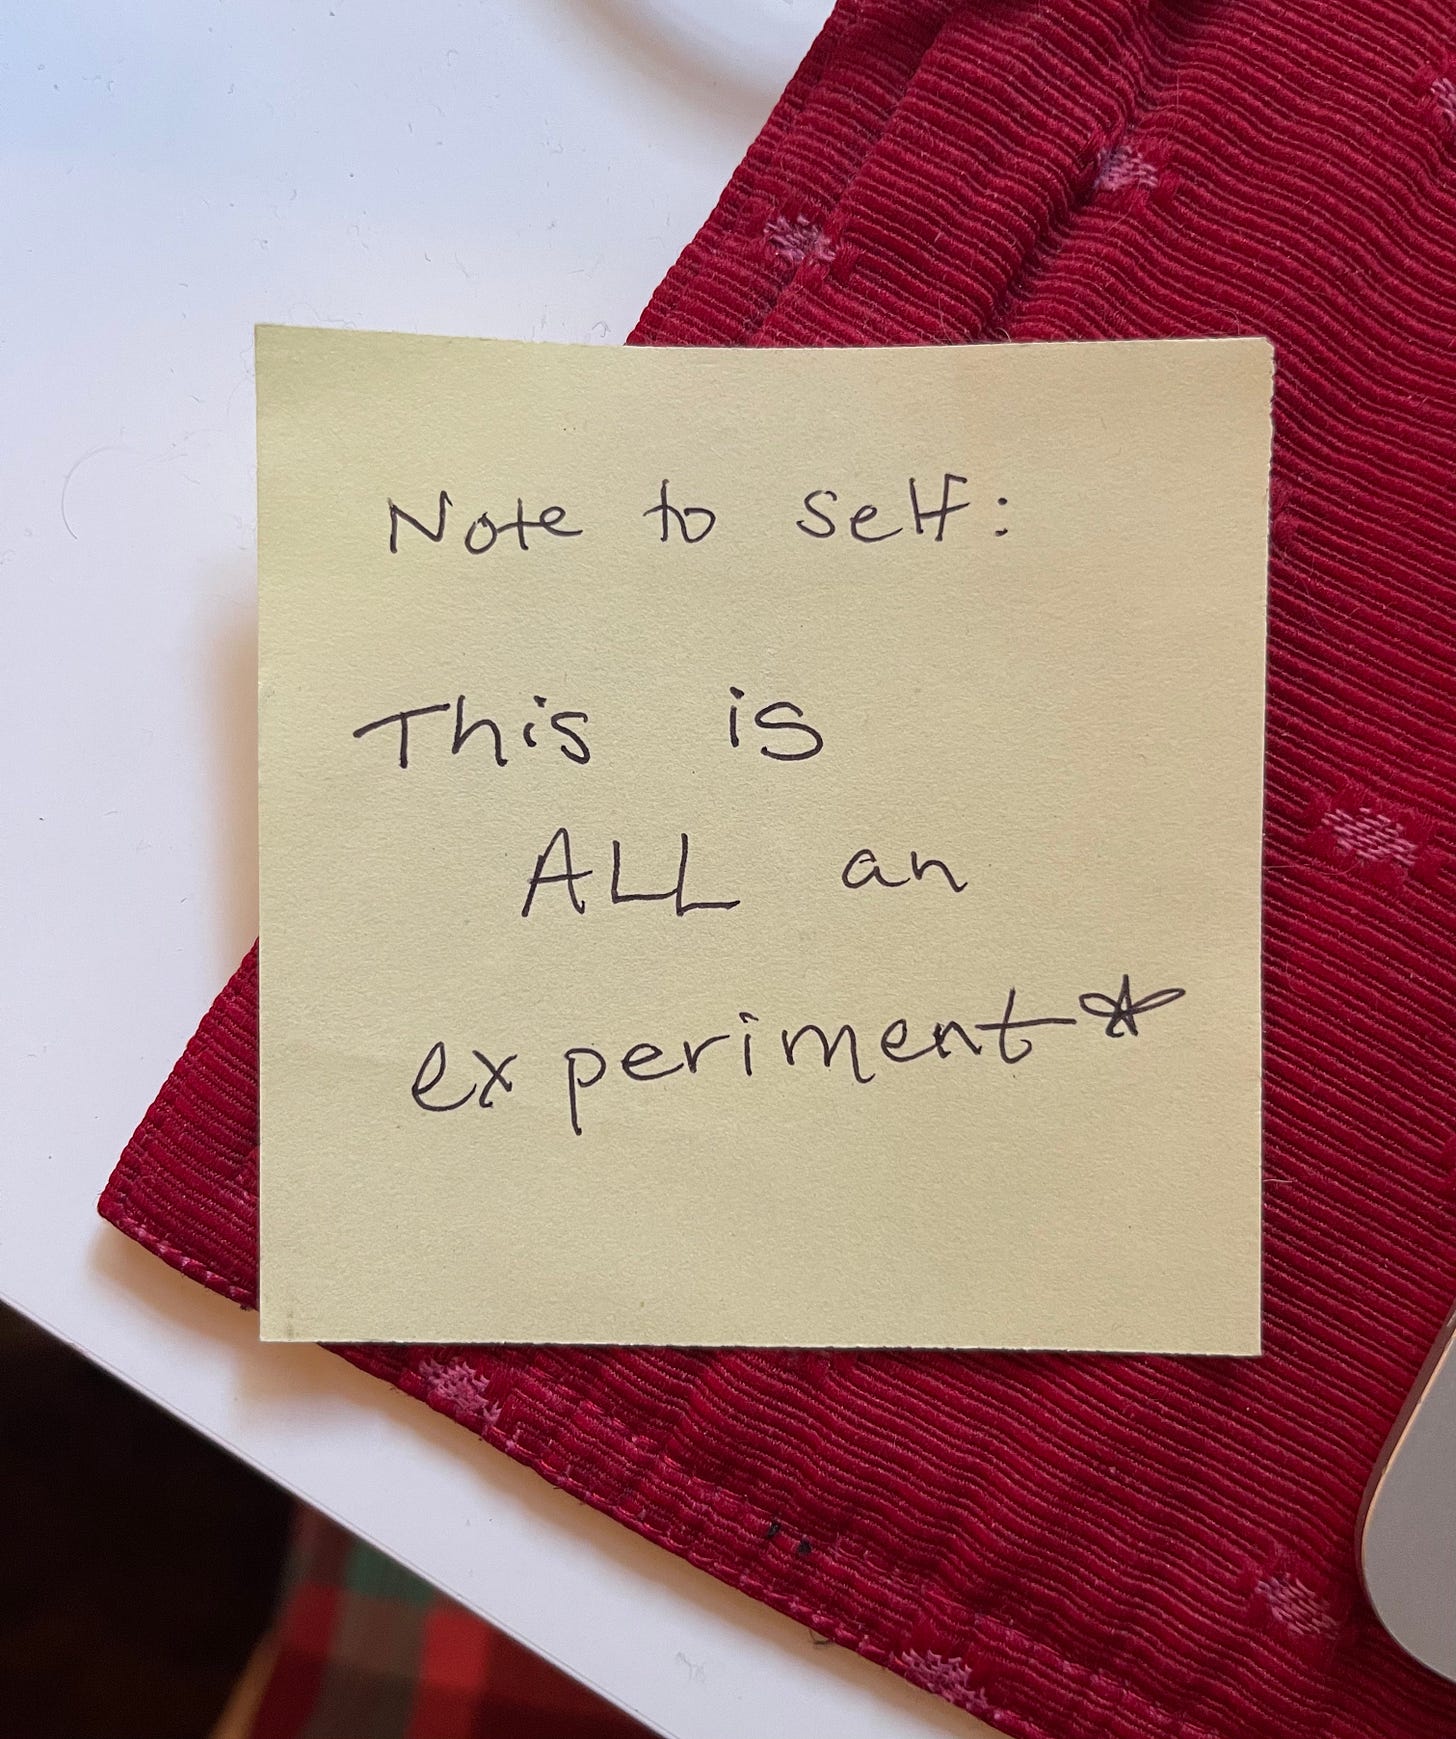 Note to self:
This is
ALL an
experiment*